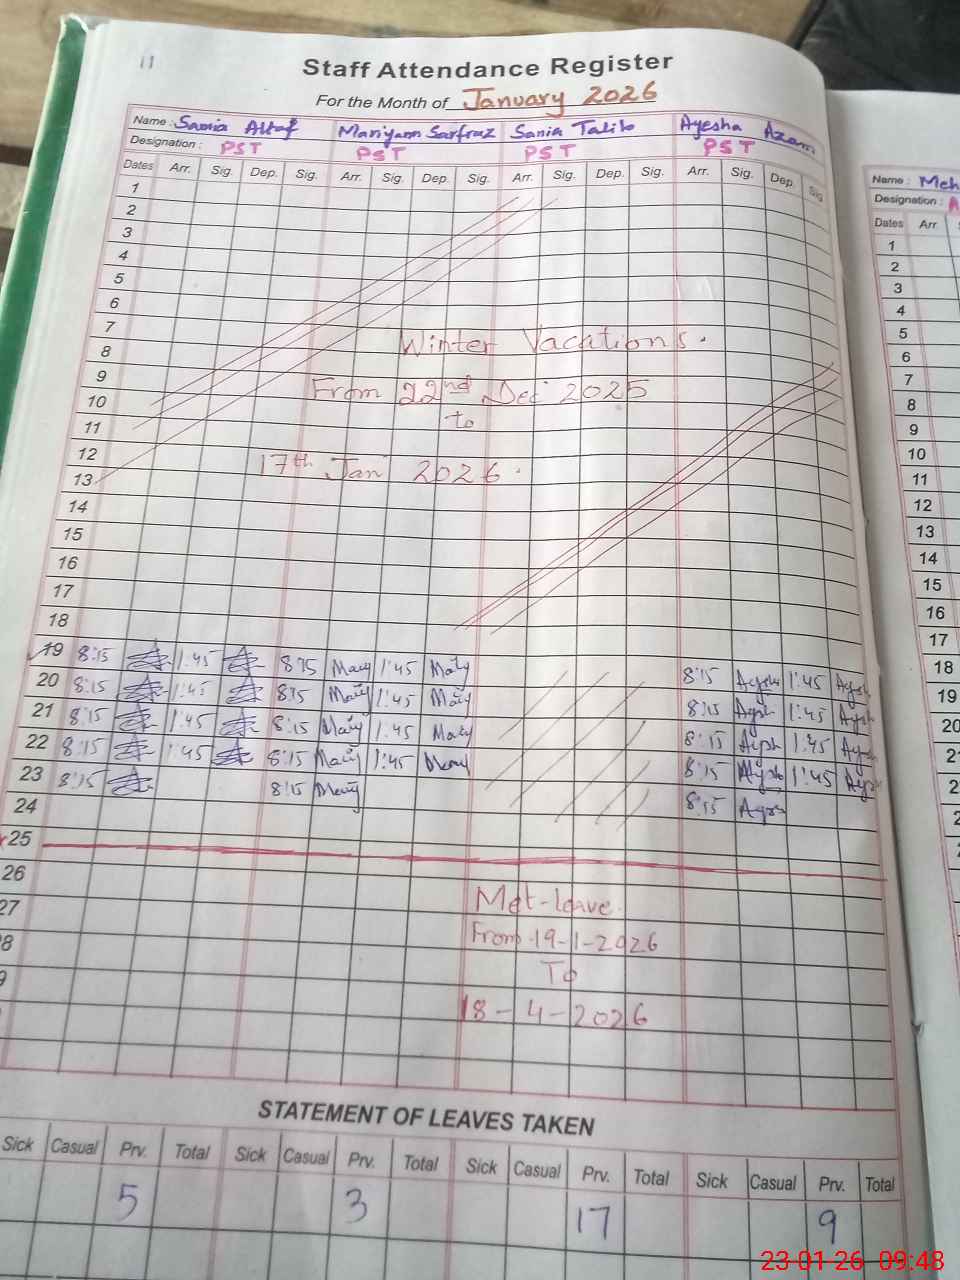 11
Staff Attendance Register
For the Month of January 2026
Name : Samia Altaf Mariyam Sarfraz Sania Talib Ayesha Azam
Designation : PST PST PST PST
Dates Arr. Sig. Dep. Sig. Arr. Sig. Dep. Sig. Arr. Sig. Dep. Sig. Arr. Sig. Dep. Sig
1
2
3
4
5
6
7
8
9
10
11
12
13
14
15
16
17
18
Winter Vacations.
From 22nd Dec 2025
to
17th Jan 2026.
19 8:15 1:45 8:15 Mary 1:45 Mary 8:15 Aysh 1:45 Aysh
20 8:15 1:45 8:15 Mary 1:45 Mary 8:15 Aysh 1:45 Aysh
21 8:15 1:45 8:15 Mary 1:45 Mary 8:15 Aysh 1:45 Aysh
22 8:15 1:45 8:15 Mary 1:45 Mary 8:15 Aysh 1:45 Aysh
23 8:15 8:15 Mary 8:15
24
25
26
27
Met-leave.
From 19-1-2026
To
18-4-2026
STATEMENT OF LEAVES TAKEN
Sick Casual Prv. Total Sick Casual Prv. Total Sick Casual Prv. Total Sick Casual Prv. Total
5 3 17 9
Name : Meh
Designation : A
Dates Arr.
1
2
3
4
5
6
7
8
9
10
11
12
13
14
15
16
17
18
19
20
23 01 26 09:48